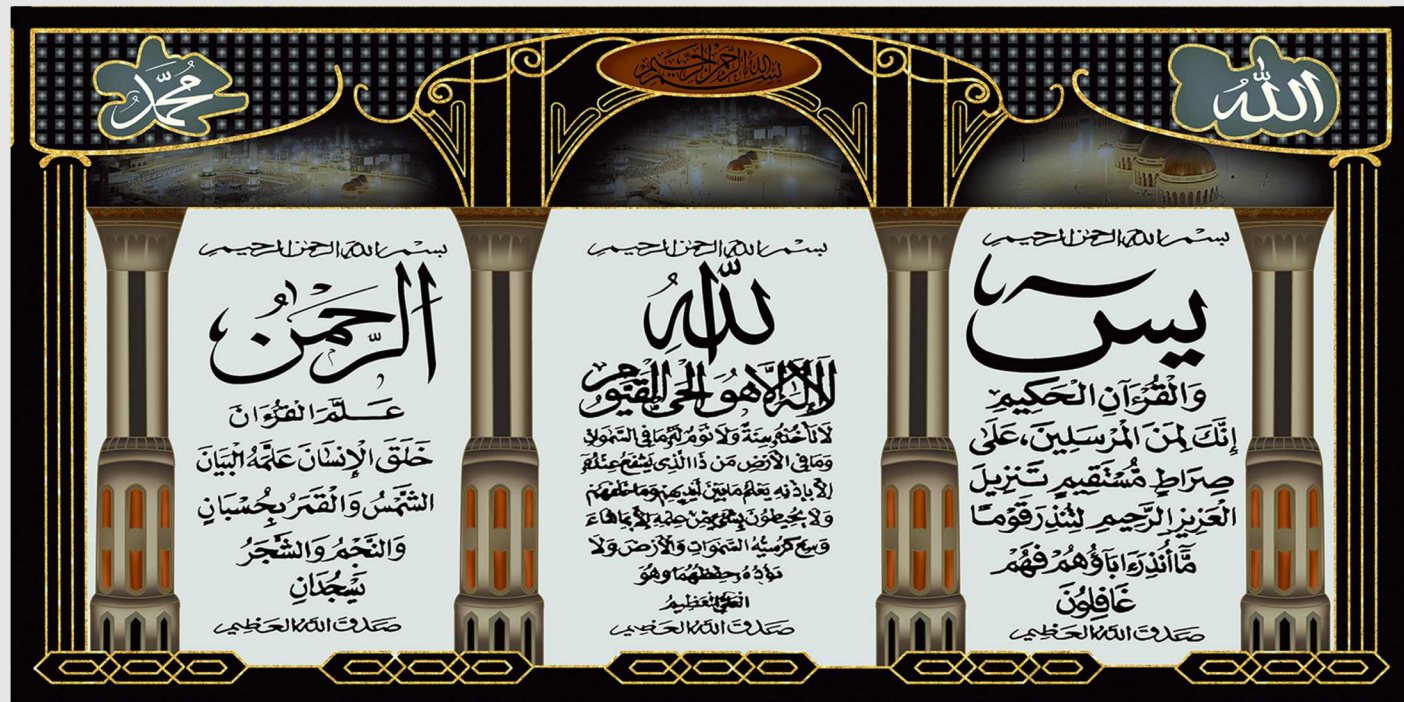 الله
بسم الله الرحمن الرحيم
مُحَمَّد
بسم الله الرحمن الرحيم
يس
وَالْقُرْآنِ الْحَكِيمِ
إِنَّكَ لَمِنَ الْمُرْسَلِينَ، عَلَى
صِرَاطٍ مُّسْتَقِيمٍ تَنزِيلَ
الْعَزِيزِ الرَّحِيمِ لِتُنذِرَ قَوْمًا
مَّا أُنذِرَ ءَابَآؤُهُمْ فَهُمْ
غَافِلُونَ
صدق الله العظيم
بسم الله الرحمن الرحيم
اللّٰهُ
لَا إِلَٰهَ إِلَّا هُوَ الْحَيُّ الْقَيُّومُ
لَا تَأْخُذُهُ سِنَةٌ وَلَا نَوْمٌ لَهُ مَا فِي السَّمَوَاتِ
وَمَا فِي الْأَرْضِ مَن ذَا الَّذِي يَشْفَعُ عِنْدَهُ
إِلَّا بِإِذْنِهِ يَعْلَمُ مَا بَيْنَ أَيْدِيهِمْ وَمَا خَلْفَهُمْ
وَلَا يُحِيطُونَ بِشَيْءٍ مِنْ عِلْمِهِ إِلَّا بِمَا شَاءَ
وَسِعَ كُرْسِيُّهُ السَّمَوَاتِ وَالْأَرْضَ وَلَا
يَؤُدُهُ حِفْظُهُمَا وَهُوَ
الْعَلِيُّ الْعَظِيمُ
صدق الله العظيم
بسم الله الرحمن الرحيم
الرَّحْمٰنُ
عَلَّمَ الْقُرْءَانَ
خَلَقَ الْإِنْسَانَ عَلَّمَهُ الْبَيَانَ
الشَّمْسُ وَالْقَمَرُ بِحُسْبَانٍ
وَالنَّجْمُ وَالشَّجَرُ
يَسْجُدَانِ
صدق الله العظيم